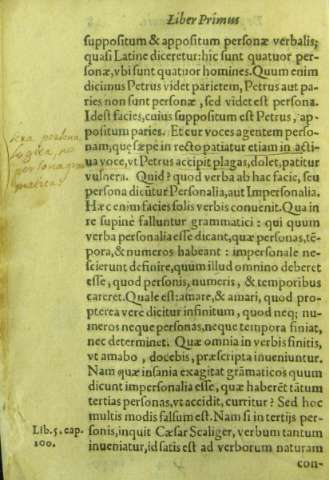 Liber Primus
suppositum & appositum personæ verbalis;
quasi Latine diceretur: hic sunt quatuor per-
sonæ, vbi sunt quatuor homines. Quum enim
dicimus Petrus videt parietem, Petrus aut pa-
ries non sunt personæ, sed videt est persona.
Id est facies, cuius suppositum est Petrus, ap-
positum paries. Et cur voces agentem perso-
nam, que sæpè in recto patiatur etiam in acti-
ua voce, vt Petrus accipit plagas, dolet, patitur
vulnera. Quid? quod verba ab hac facie, seu
persona dicũtur Personalia, aut Impersonalia.
Hæc enim facies solis verbis conuenit. Qua in
re supinè falluntur grammatici: qui quum
verba personalia esse dicant, quæ personas, tẽ-
pora, & numeros habeant: impersonale ne-
scierunt definire, quum illud omnino deberet
esse, quod personis, numeris, & temporibus
careret. Quale est: amare, & amari, quod pro-
pterea vere dicitur infinitum, quod neq; nu-
meros neque personas, neque tempora finiat,
nec determinet. Quæ omnia in verbis finitis,
vt amabo, docebis, præscripta inueniuntur.
Nam quæ insania exagitat grãmaticos quum
dicunt impersonalia esse, quæ haberẽt tãtum
tertias personas, vt accidit, curritur? Sed hoc
multis modis falsum est. Nam si in tertijs per-
sonis, inquit Cæsar Scaliger, verbum tantum
inueniatur, id satis est ad verborum naturam
con-
persona
logica, no
persona gra
matica.
Lib. 5. cap.
100.